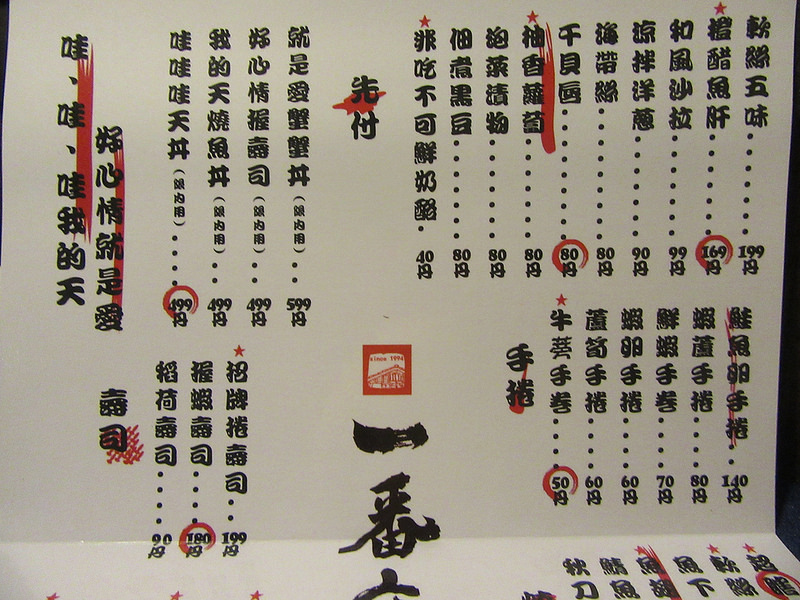 軟絲五味······199円
橙醋魚肝······169円
和風沙拉······99円
涼拌洋蔥······90円
海帶絲·······80円
干貝唇·······80円
柚香蘿蔔······80円
泡菜漬物······80円
佃煮黑豆······80円
非吃不可鮮奶酪·40円
先付
就是愛蟹蟹丼(限內用)··599円
好心情握壽司(限內用)··499円
我的天燒魚丼(限內用)··499円
哇哇哇天丼(限內用)···499円
好心情就是愛
哇、哇、哇我的天
鮭魚卵手捲··140円
蝦蘆手捲···80円
鮮蝦手卷···70円
蝦卵手捲···60円
蘆筍手捲···60円
牛蒡手卷···50円
手捲
since 1994
一番
招牌捲壽司··199円
握蝦壽司···180円
稻荷壽司···90円
壽司
軟絲
魚下
鯖魚
秋刀